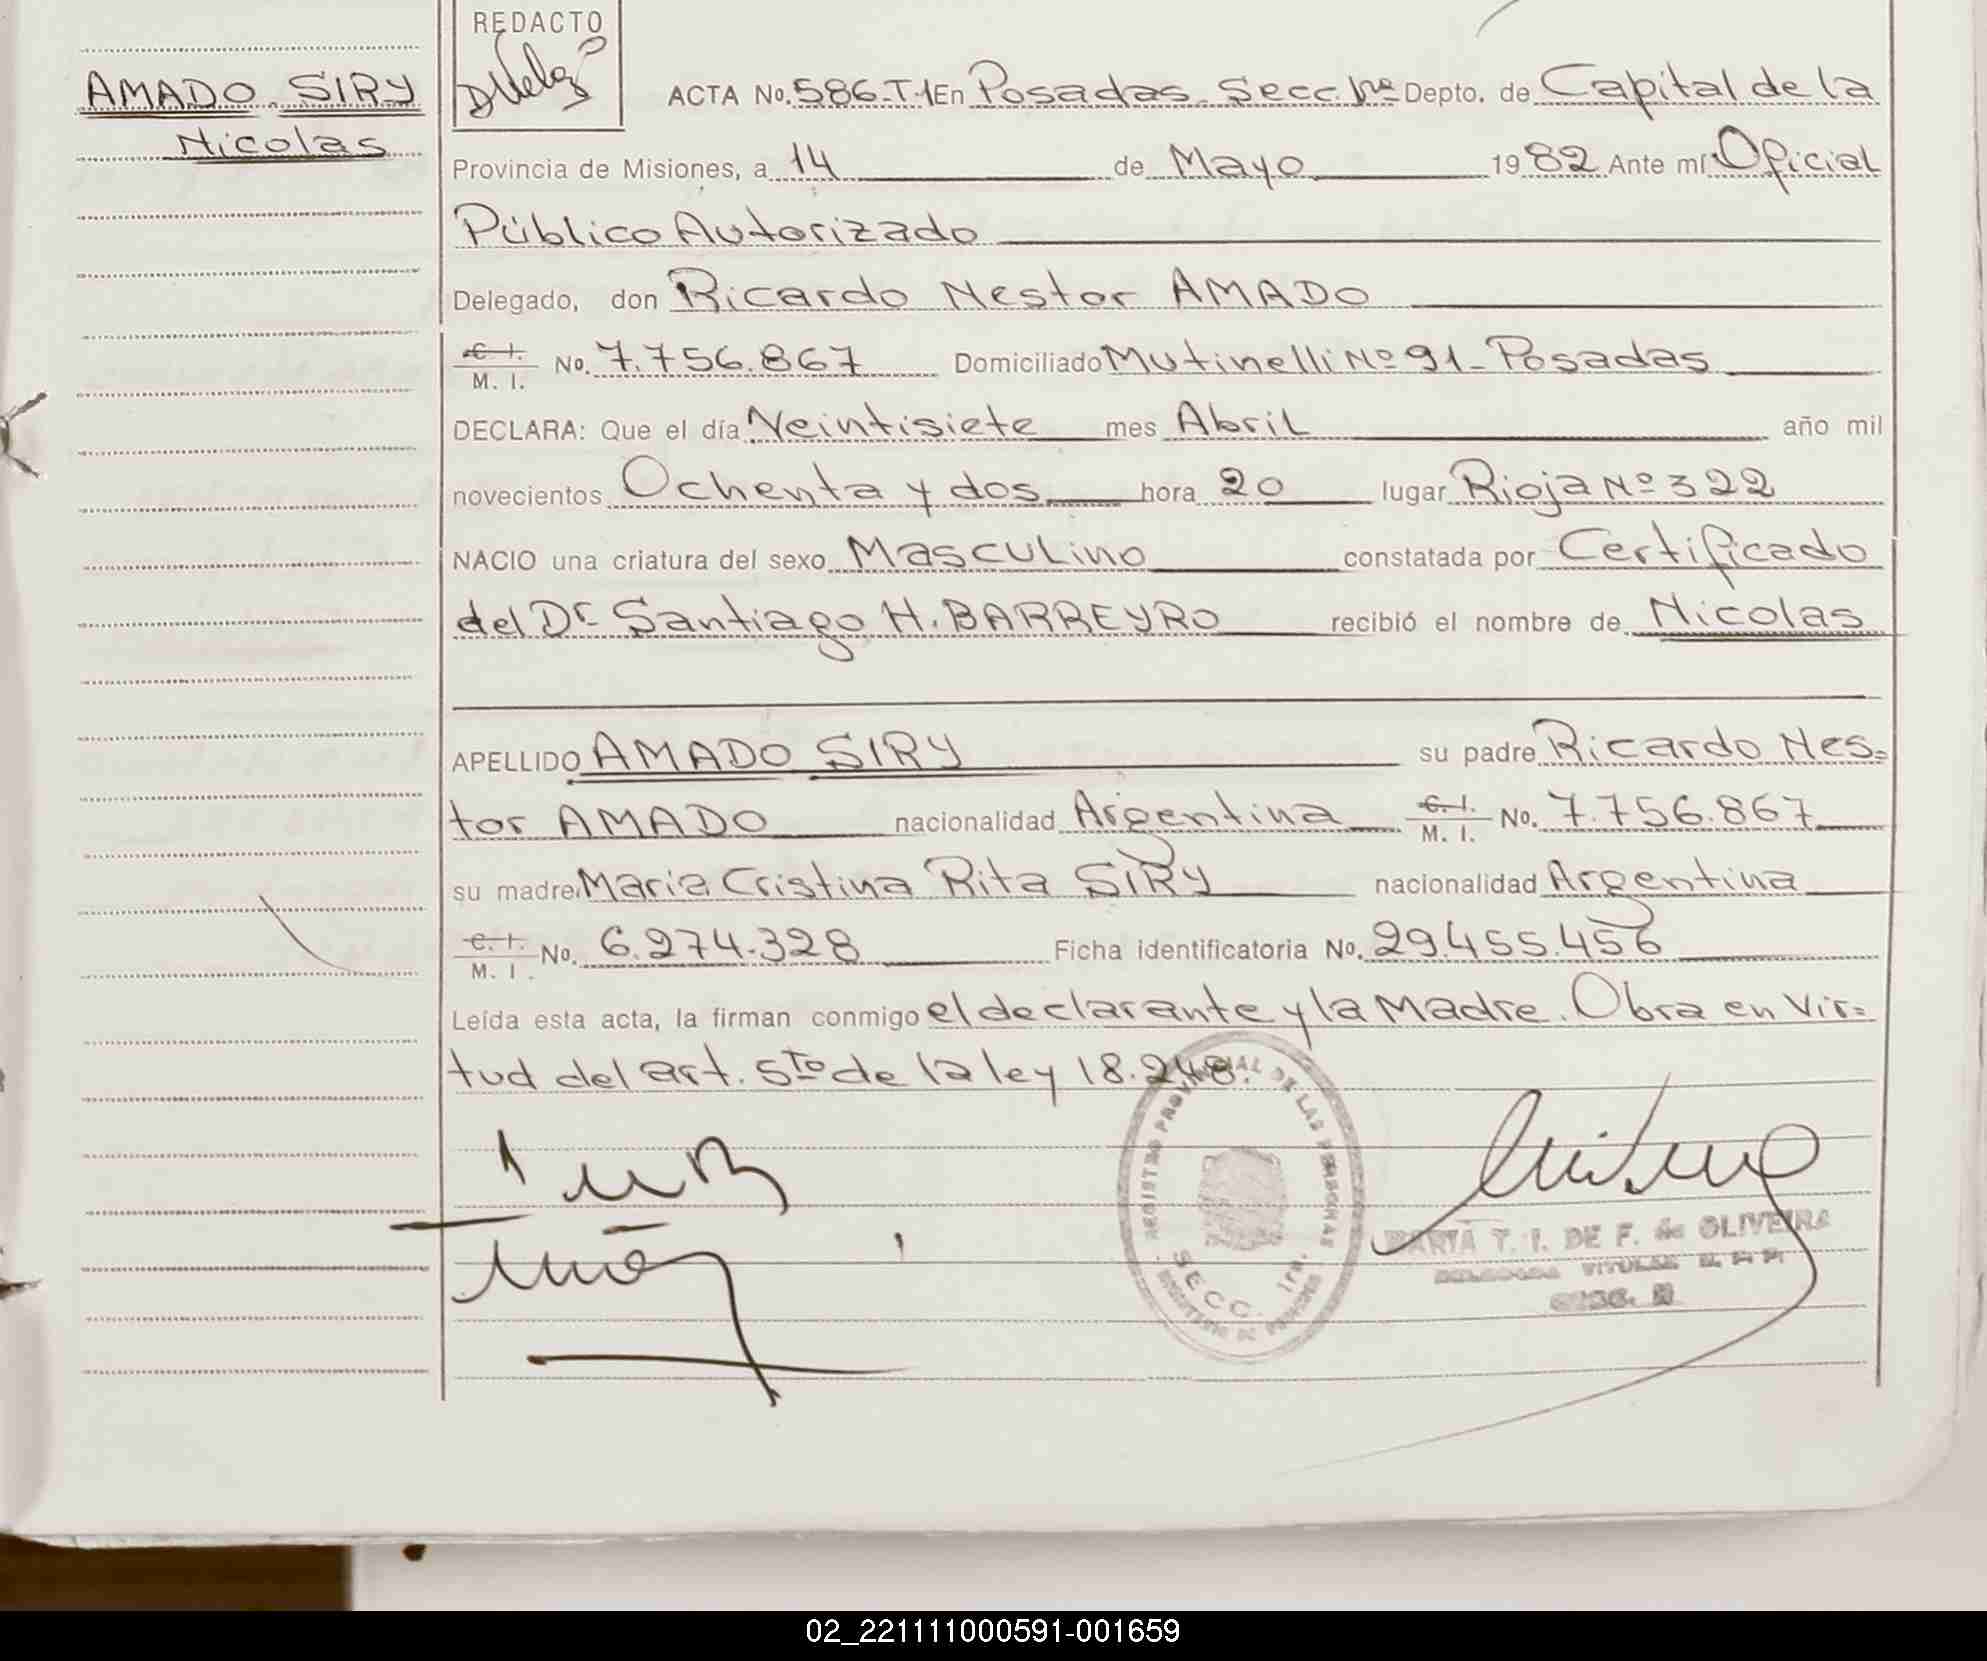 REDACTO
AMADO SIRY
Nicolas
ACTA No. 586-T-1 En Posadas. Secc. 1ra Depto. de Capital de la
Provincia de Misiones, a 14 de Mayo 1982 Ante mí Oficial
Público Autorizado
Delegado, don Ricardo Nestor AMADO
C. I. M. I. No. 7.756.867 Domiciliado Mutinelli Nº 91 - Posadas
DECLARA: Que el día Veintisiete mes Abril año mil
novecientos Ochenta y dos hora 20 lugar Rioja Nº 322
NACIO una criatura del sexo Masculino constatada por Certificado
del Dr. Santiago H. BARREYRO recibió el nombre de Nicolas
APELLIDO AMADO SIRY su padre Ricardo Nes=
tor AMADO nacionalidad Argentina C. I. M. I. No. 7.756.867
su madre Maria Cristina Rita SIRY nacionalidad Argentina
C. I. M. I. No. 6.274.328 Ficha identificatoria No. 29.455.456
Leída esta acta, la firman conmigo el declarante y la Madre. Obra en Vir=
tud del art. 5to de la ley 18.248.
REGISTRO PROVINCIAL DE LAS PERSONAS
SECC. 1ra.
MARIA T. I. DE F. de OLIVEIRA
02_221111000591-001659